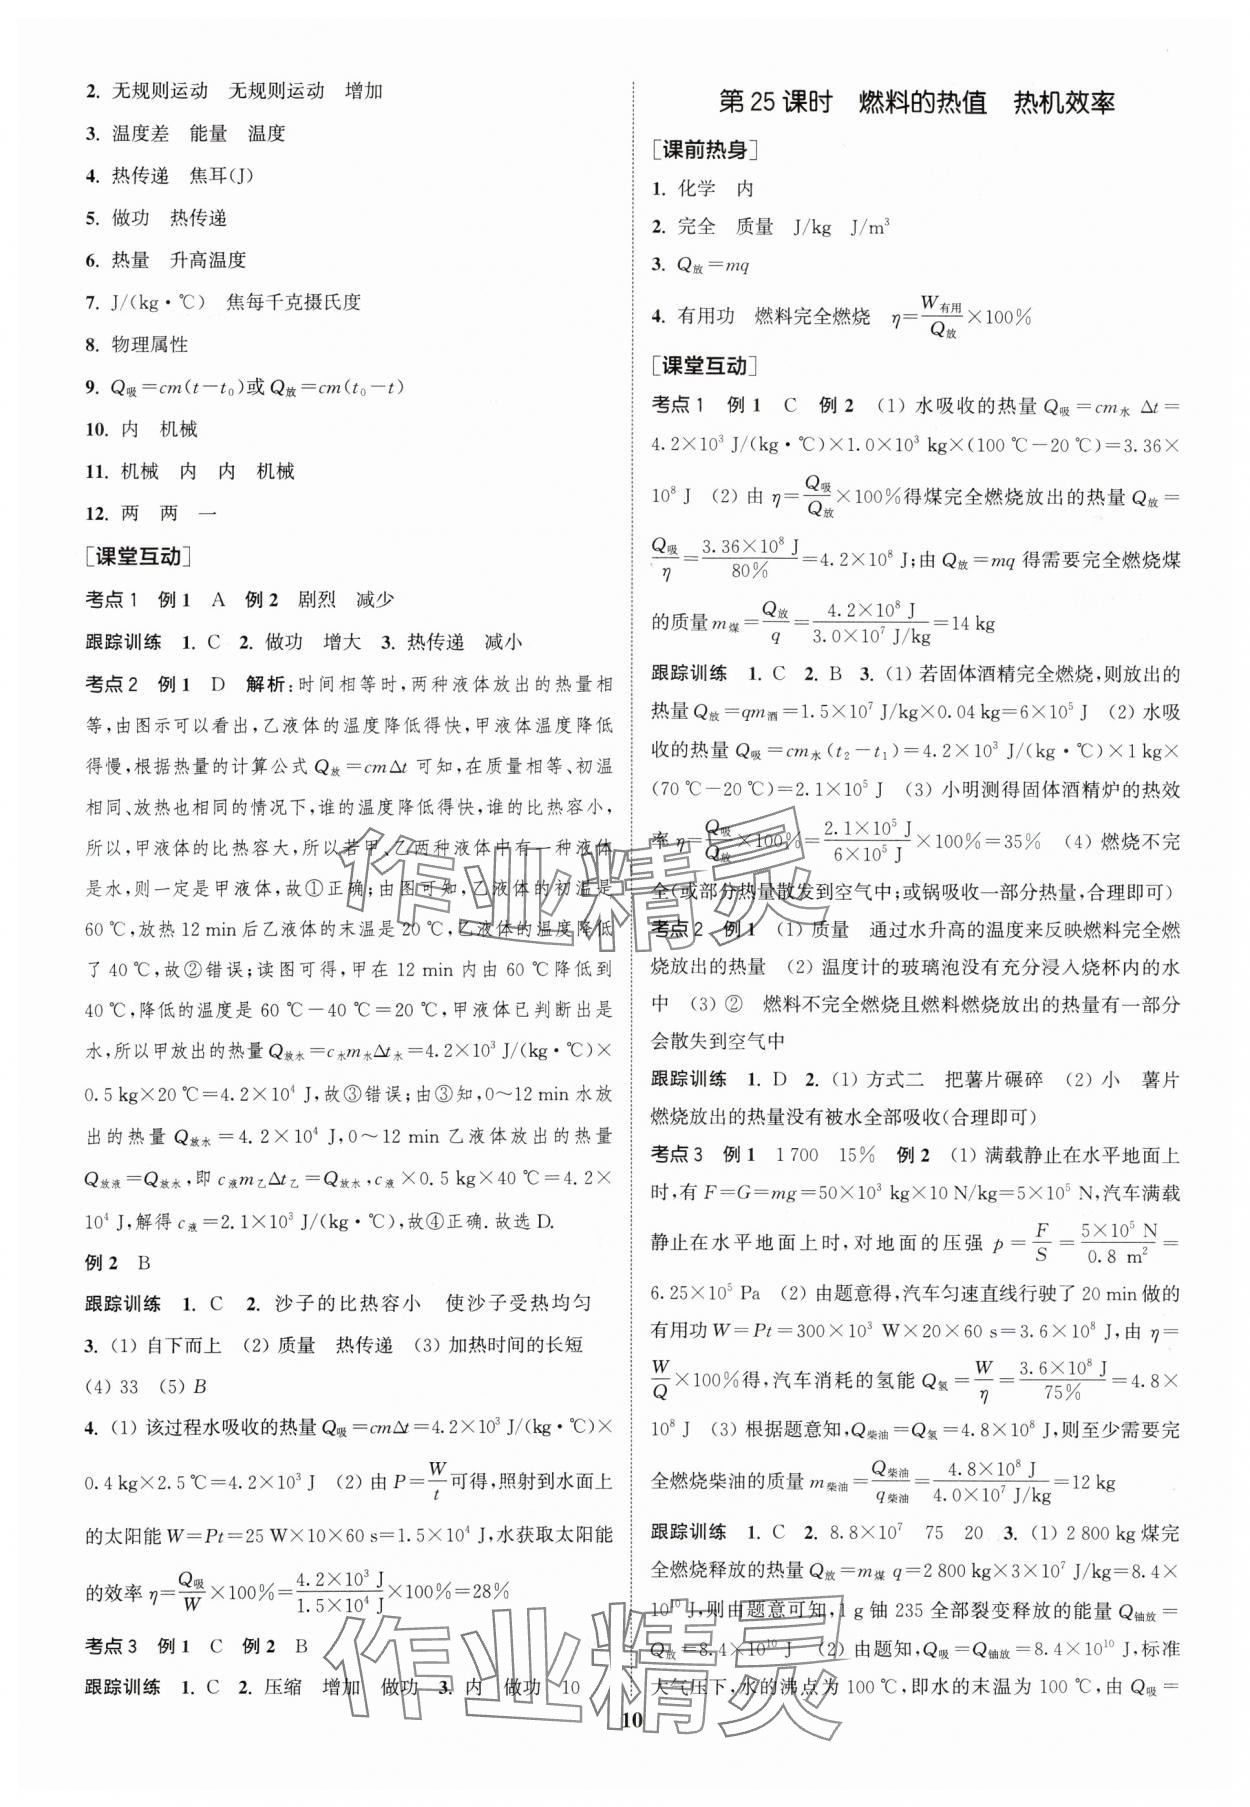 2. 无规则运动 无规则运动 增加
3. 温度差 能量 温度
4. 热传递 焦耳(J)
5. 做功 热传递
6. 热量 升高温度
7. J/(kg·℃) 焦每千克摄氏度
8. 物理属性
9. Q吸=cm(t-t₀)或Q放=cm(t₀-t)
10. 内 机械
11. 机械 内 内 机械
12. 两 两 一
[课堂互动]
考点1 例1 A 例2 剧烈 减少
跟踪训练 1. C 2. 做功 增大 3. 热传递 减小
考点2 例1 D 解析:时间相等时,两种液体放出的热量相
等,由图示可以看出,乙液体的温度降低得快,甲液体温度降低
得慢,根据热量的计算公式Q放=cmΔt可知,在质量相等、初温
相同、放热也相同的情况下,谁的温度降低得快,谁的比热容小,
所以,甲液体的比热容大,所以若甲、乙两种液体中有一种液体
是水,则一定是甲液体,故①正确;由图可知,乙液体的初温是
60℃,放热12 min后乙液体的末温是20℃,乙液体的温度降低
了40℃,故②错误;读图可得,甲在12 min内由60℃降低到
40℃,降低的温度是60℃-40℃=20℃,甲液体已判断出是
水,所以甲放出的热量Q放水=c水m水Δt水=4.2×10³ J/(kg·℃)×
0.5 kg×20℃=4.2×10⁴ J,故③错误;由③知,0~12 min水放
出的热量Q放水=4.2×10⁴ J,0~12 min乙液体放出的热量
Q放液=Q放水,即c液m乙Δt乙=Q放水,c液×0.5 kg×40℃=4.2×
10⁴ J,解得c液=2.1×10³ J/(kg·℃),故④正确.故选D.
例2 B
跟踪训练 1. C 2. 沙子的比热容小 使沙子受热均匀
3. (1) 自下而上 (2) 质量 热传递 (3) 加热时间的长短
(4) 33 (5) B
4. (1) 该过程水吸收的热量Q吸=cmΔt=4.2×10³ J/(kg·℃)×
0.4 kg×2.5℃=4.2×10³ J (2) 由P=W/t可得,照射到水面上
的太阳能W=Pt=25 W×10×60 s=1.5×10⁴ J,水获取太阳能
的效率η=Q吸/W×100%=4.2×10³ J/1.5×10⁴ J×100%=28%
考点3 例1 C 例2 B
跟踪训练 1. C 2. 压缩 增加 做功 3. 内 做功 10
第25课时 燃料的热值 热机效率
[课前热身]
1. 化学 内
2. 完全 质量 J/kg J/m³
3. Q放=mq
4. 有用功 燃料完全燃烧 η=W有用/Q放×100%
[课堂互动]
考点1 例1 C 例2 (1) 水吸收的热量Q吸=cm水Δt=
4.2×10³ J/(kg·℃)×1.0×10³ kg×(100℃-20℃)=3.36×
10⁸ J (2) 由η=Q吸/Q放×100%得煤完全燃烧放出的热量Q放=
Q吸/η=3.36×10⁸ J/80%=4.2×10⁸ J;由Q放=mq得需要完全燃烧煤
的质量m煤=Q放/q=4.2×10⁸ J/3.0×10⁷ J/kg=14 kg
跟踪训练 1. C 2. B 3. (1) 若固体酒精完全燃烧,则放出的
热量Q放=qm酒=1.5×10⁷ J/kg×0.04 kg=6×10⁵ J (2) 水吸
收的热量Q吸=cm水(t₂-t₁)=4.2×10³ J/(kg·℃)×1 kg×
(70℃-20℃)=2.1×10⁵ J (3) 小明测得固体酒精炉的热效
率η=Q吸/Q放×100%=2.1×10⁵ J/6×10⁵ J×100%=35% (4) 燃烧不完
全(或部分热量散发到空气中;或锅吸收一部分热量,合理即可)
考点2 例1 (1) 质量 通过水升高的温度来反映燃料完全燃
烧放出的热量 (2) 温度计的玻璃泡没有充分浸入烧杯内的水
中 (3) ② 燃料不完全燃烧且燃料燃烧放出的热量有一部分
会散失到空气中
跟踪训练 1. D 2. (1) 方式二 把薯片碾碎 (2) 小 薯片
燃烧放出的热量没有被水全部吸收(合理即可)
考点3 例1 1 700 15% 例2 (1) 满载静止在水平地面上
时,有F=G=mg=50×10³ kg×10 N/kg=5×10⁵ N,汽车满载
静止在水平地面上时,对地面的压强p=F/S=5×10⁵ N/0.8 m²=
6.25×10⁵ Pa (2) 由题意得,汽车匀速直线行驶了20 min做的
有用功W=Pt=300×10³ W×20×60 s=3.6×10⁸ J,由η=
W/Q×100%得,汽车消耗的氢能Q氢=W/η=3.6×10⁸ J/75%=4.8×
10⁸ J (3) 根据题意知,Q柴油=Q氢=4.8×10⁸ J,则至少需要完
全燃烧柴油的质量m柴油=Q柴油/q柴油=4.8×10⁸ J/4.0×10⁷ J/kg=12 kg
跟踪训练 1. C 2. 8.8×10⁷ 75 20 3. (1) 2 800 kg煤完
全燃烧释放的热量Q放=m煤q=2 800 kg×3×10⁷ J/kg=8.4×
10¹⁰ J,则由题意可知,1 g铀235全部裂变释放的能量Q铀放=
Q放=8.4×10¹⁰ J (2) 由题知,Q吸=Q铀放=8.4×10¹⁰ J,标准
大气压下,水的沸点为100℃,即水的末温为100℃,由Q吸=
10
作业精灵
作业精灵